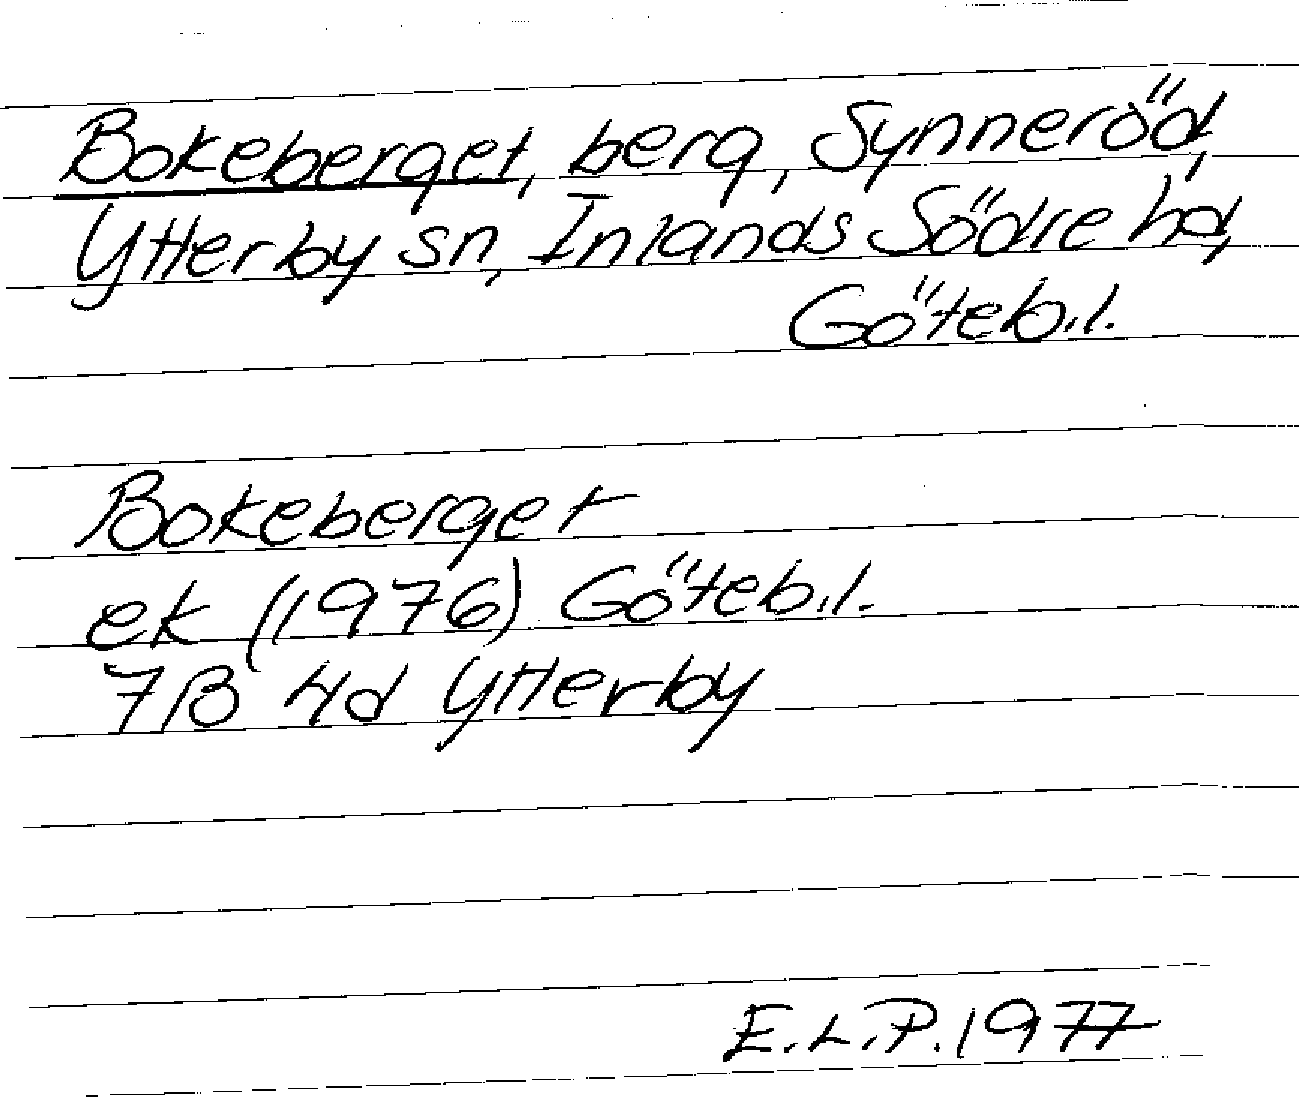 Bokeberget, berg, Synneröd,
Ytterby sn, Inlands Södre hd,
Göteb.l.
Bokeberget
ek (1976) Göteb.l.
7B 4d Ytterby
E.L.P. 1977